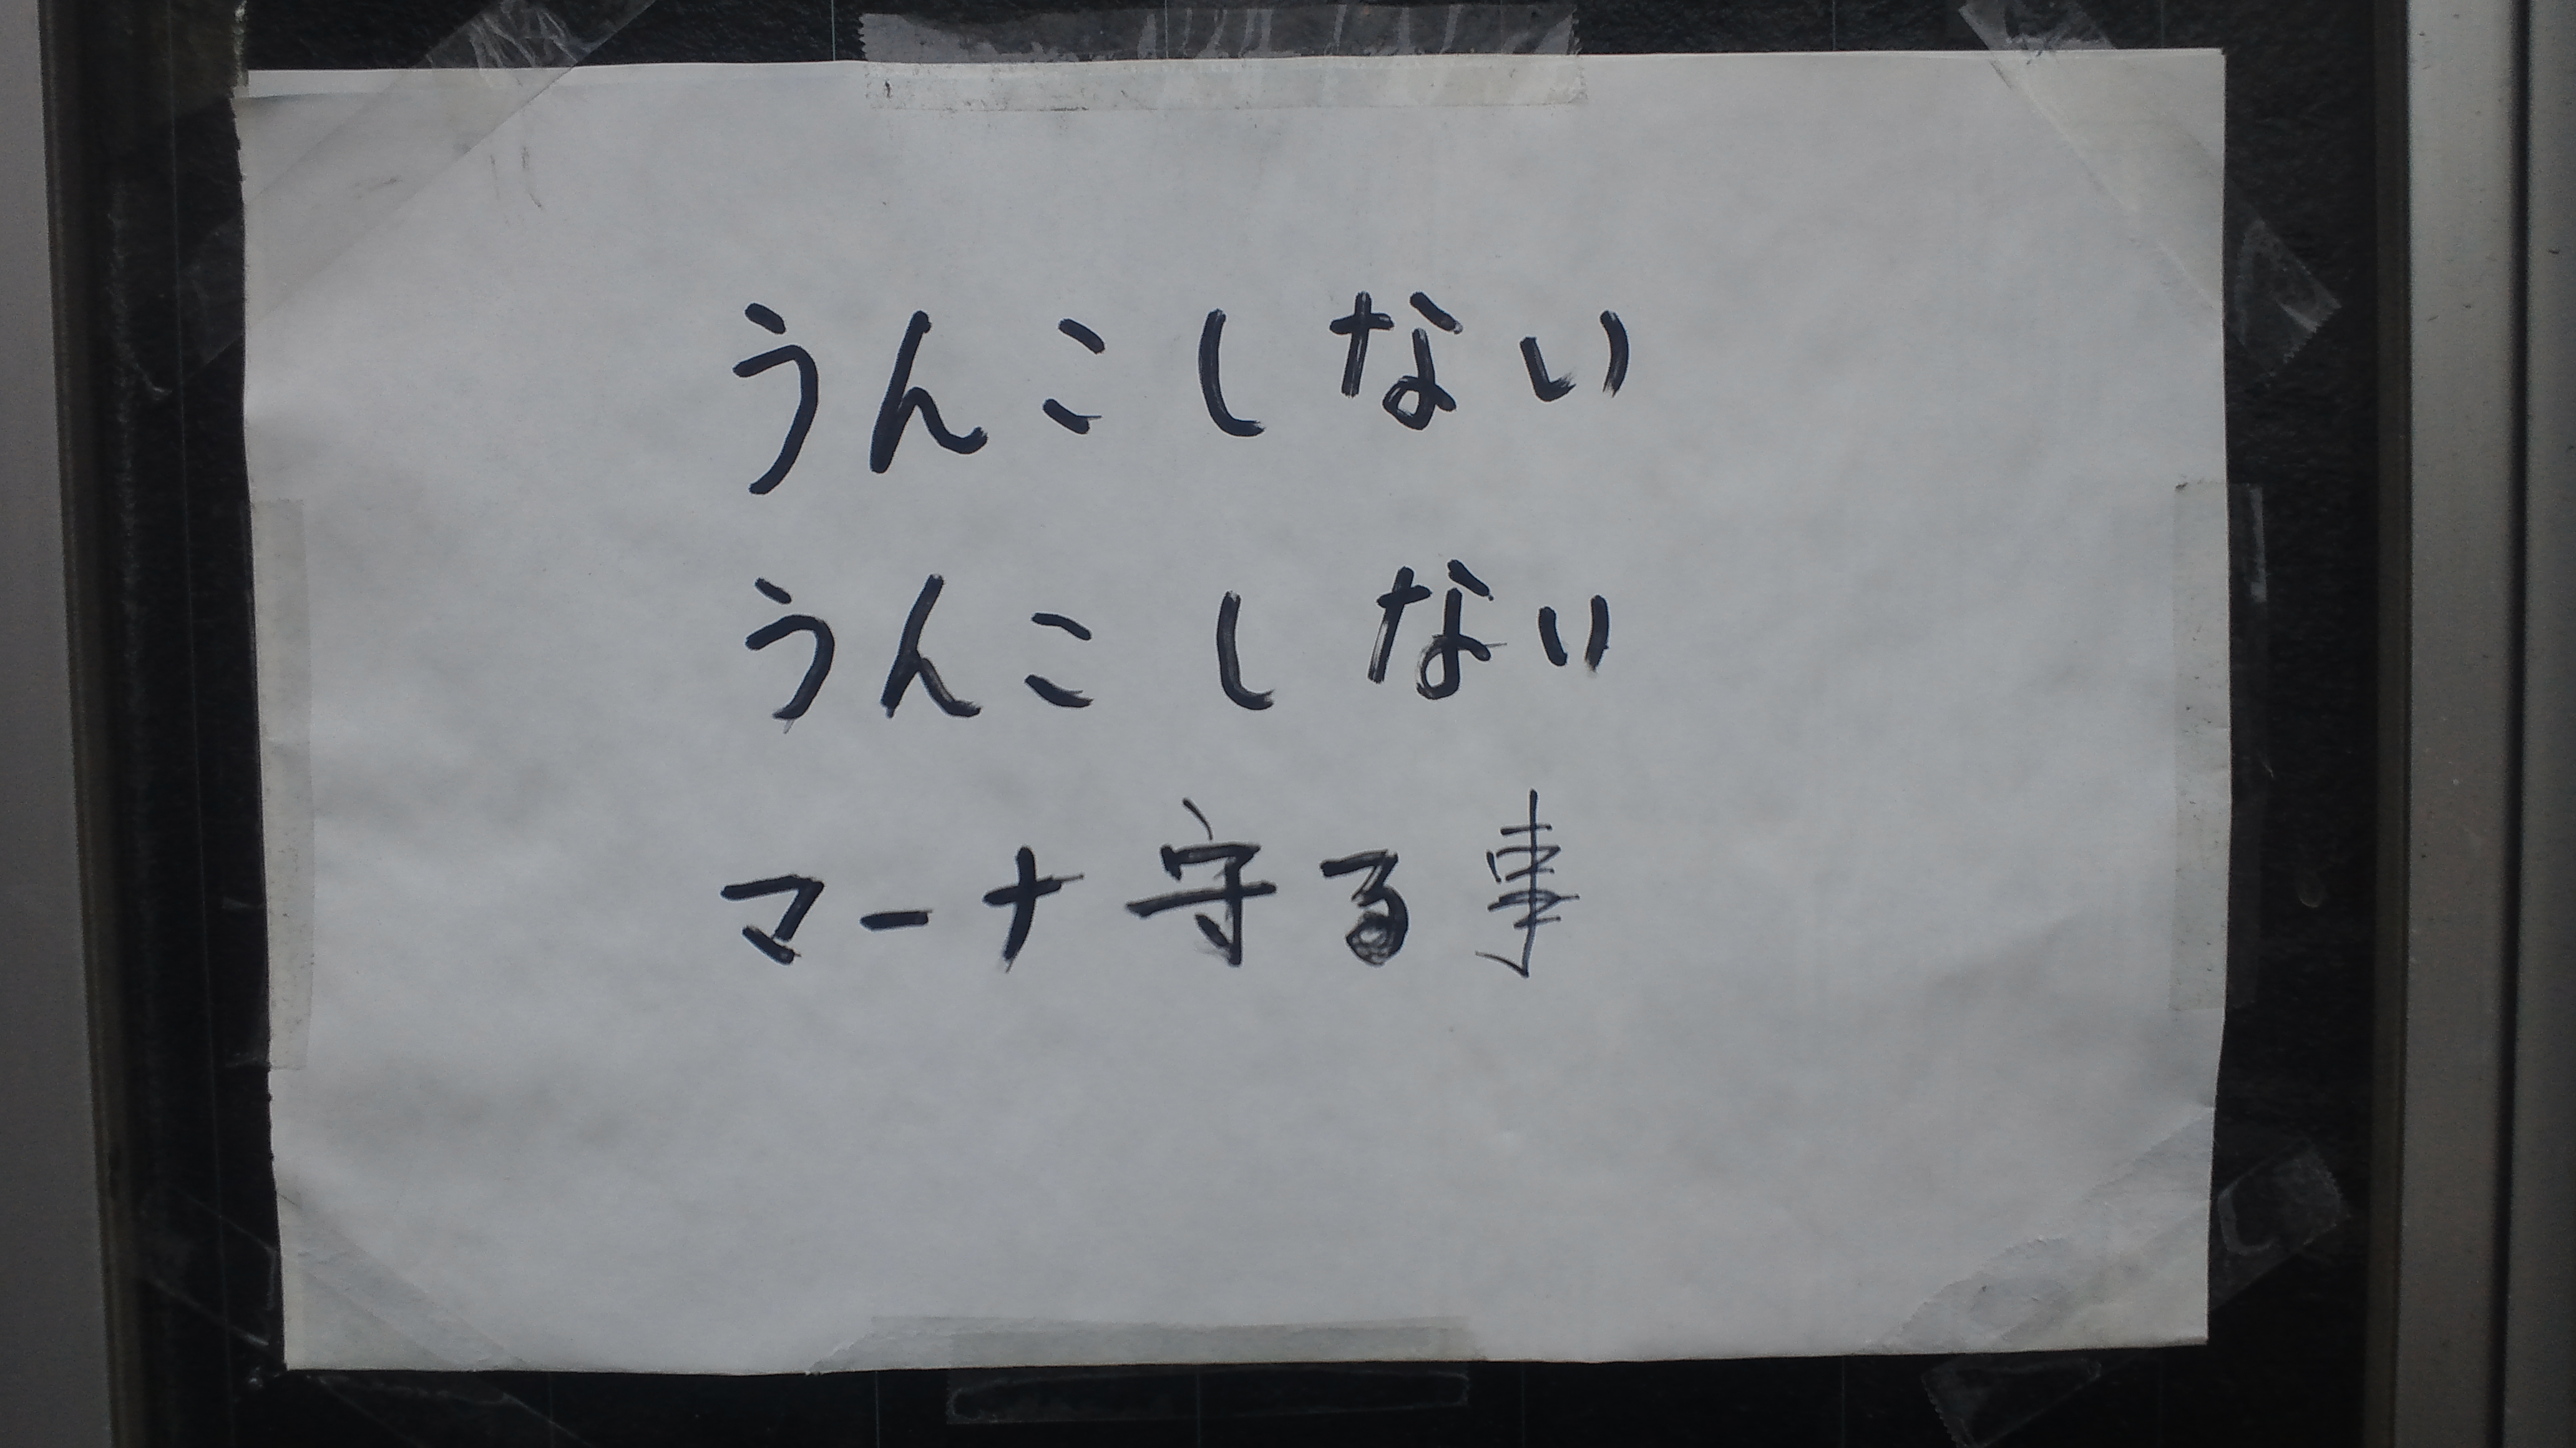 うんこしない
うんこしない
マーナ守る事